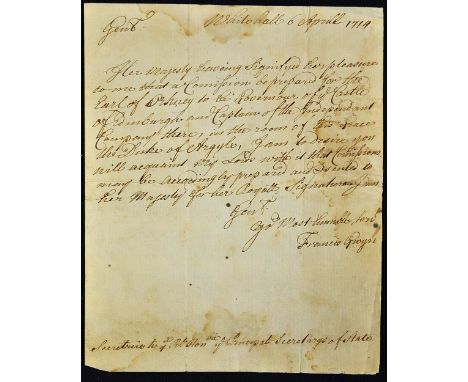 Whitehall 6 Aprill 1714
Gentn
Her Majesty having Signified her pleasure
to me that a Comission be prepared for the
Earl of Orkney to be Governour of ye Castle
of Edinburgh and Captain of the Independant
Company there, in the room of his Grace
the Duke of Argyle, I am to desire you
will acquaint His Lordp with it that Comissions
may be accordingly prepared and sent to
her Majesty for her Royall Signature, I am
Gentn
Yor Most humble Servt
Francis Gwyn
Secretries to ye Rt Honble ye Principal Secretarys of State